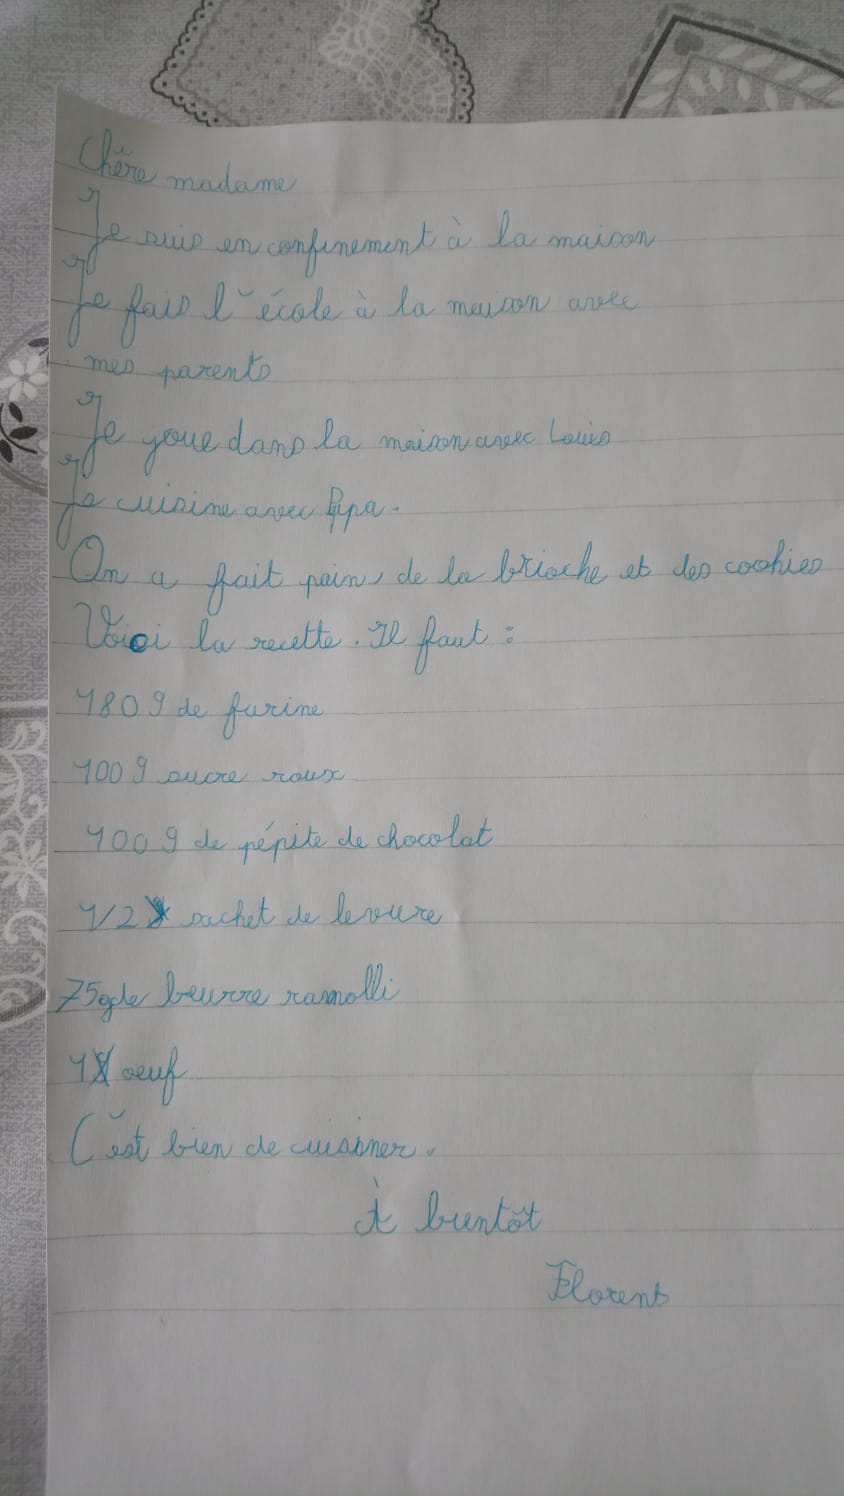 Chère madame
Je suis en confinement à la maison
Je fais l'école à la maison avec
mes parents
Je youe dans la maison avec Louis
Je cuisine avec Papa.
On a fait pain, de la brioche et des cookies
Voici la recette. Il faut :
180 g de farine
100 g sucre roux
100 g de pépite de chocolat
1/2 sachet de levure
75g de beurre ramolli
1 oeuf
C'est bien de cuisiner.
À bientôt
Florent